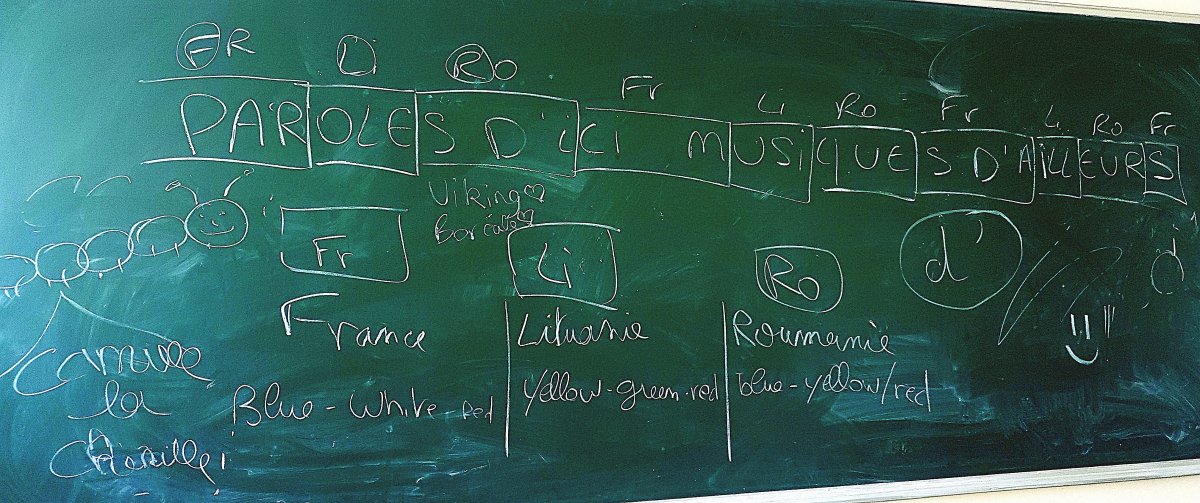 FR Li Ro Fr Li Ro Fr Li Ro Fr
PAROLES D'ICI MUSIQUES D'AILLEURS
Viking
Fr Li Ro d' d
France Lituanie Roumanie
Blue - White - Red yellow - green - red blue - yellow/red
la